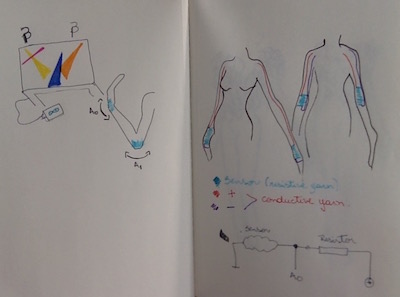 A0
A1
sensor (resistive yarn)
+
- > conductive yarn
sensor
resistor
A0